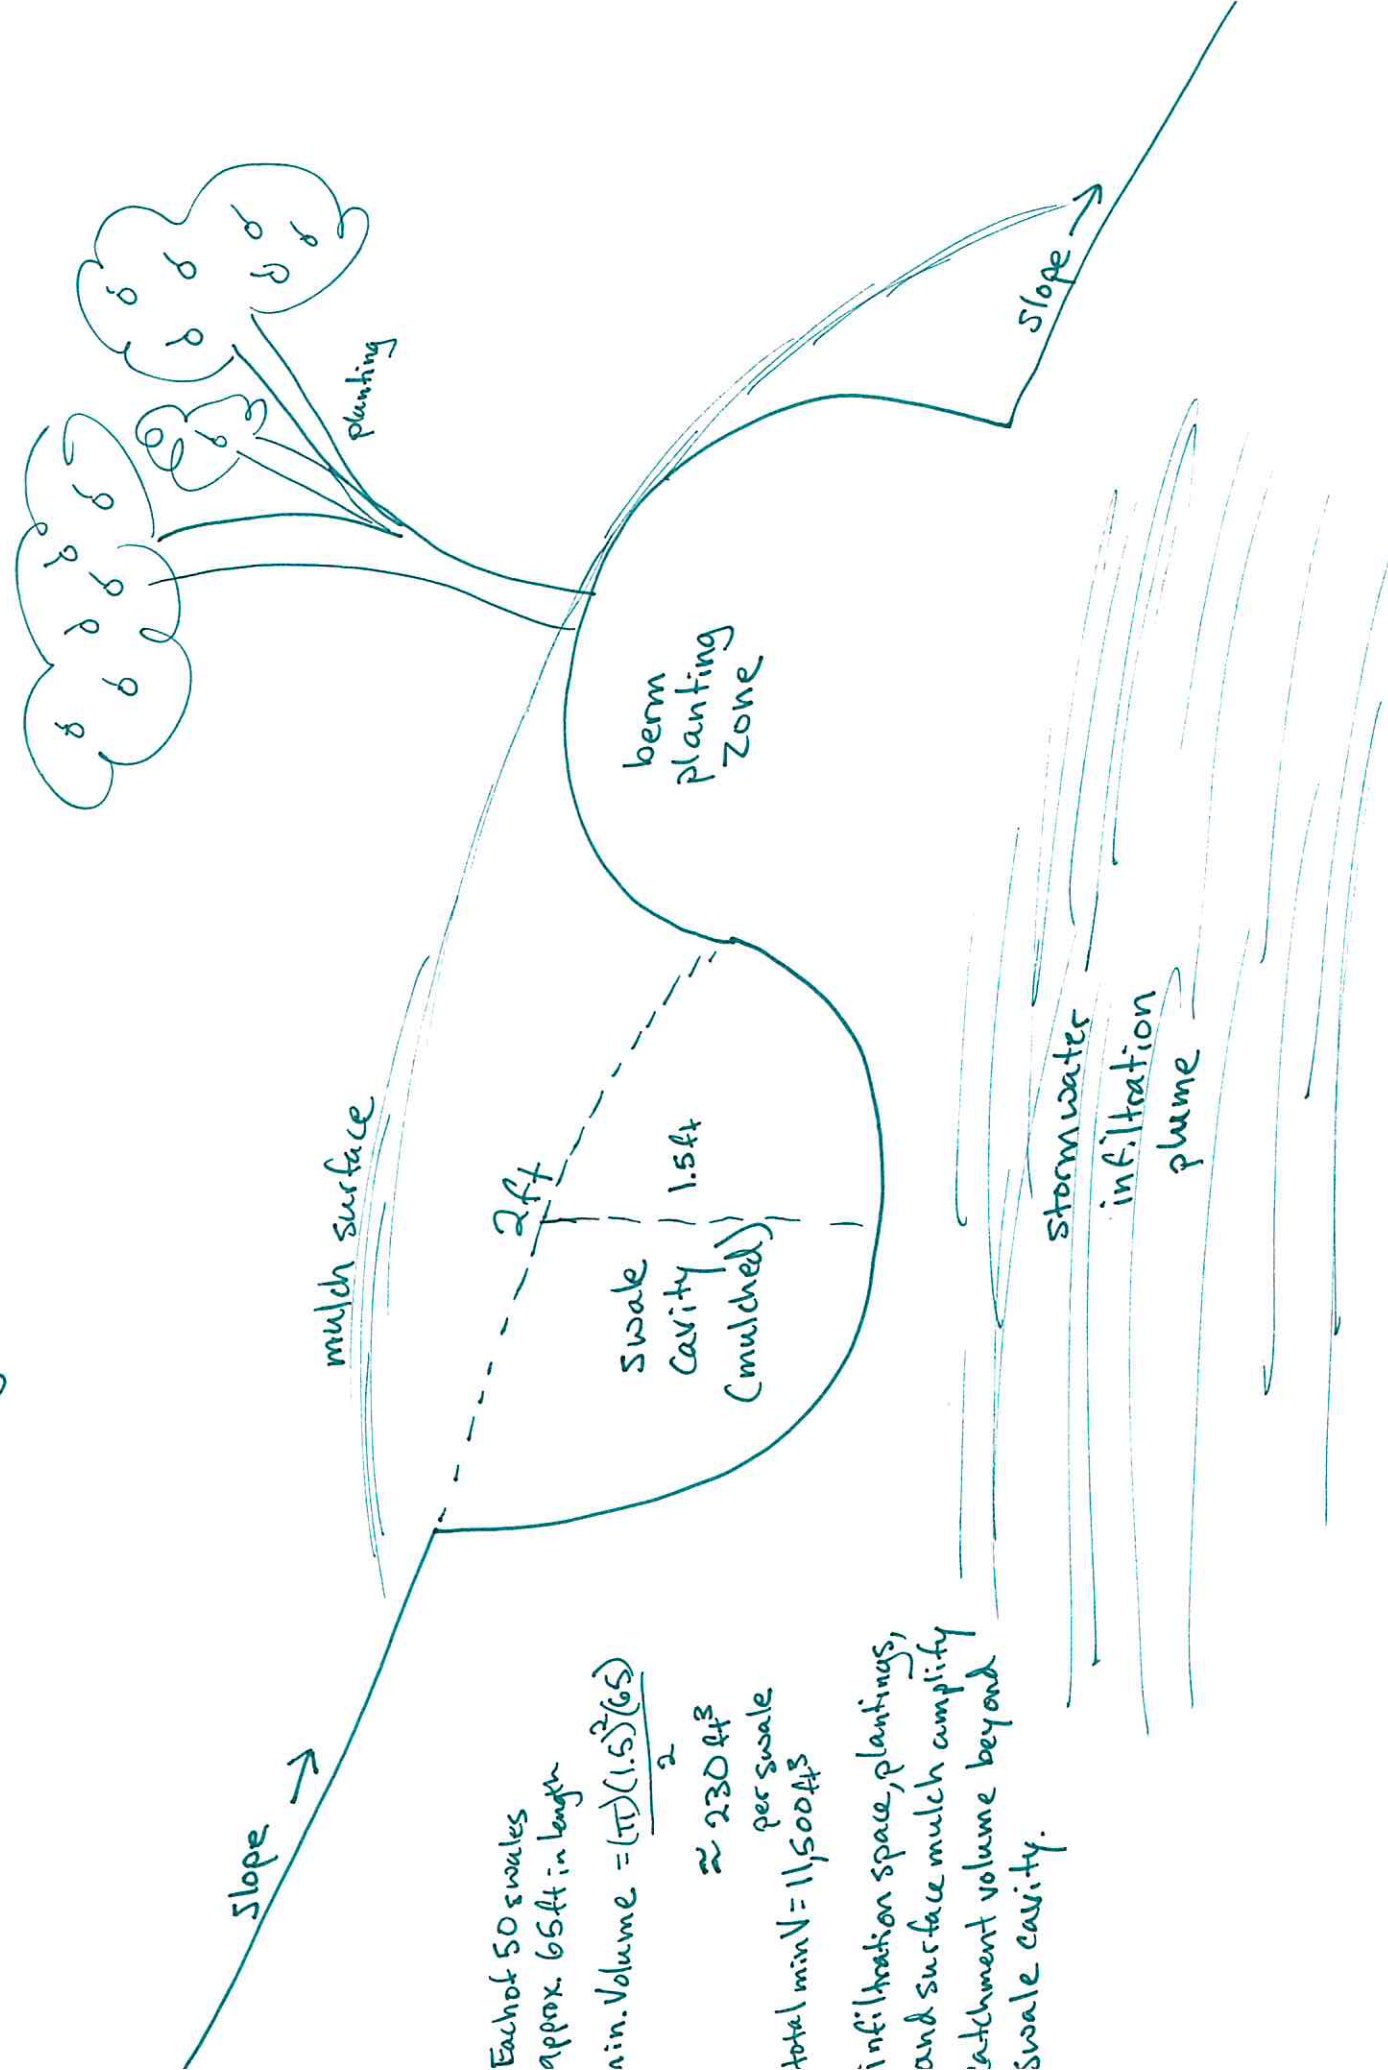 planting
mulch surface
2ft
1.5ft
swale
cavity
(mulched)
berm
planting
zone
slope →
slope →
stormwater
infiltration
plume
Each of 50 swales
approx. 65ft in length
min. Volume = (π)(1.5)²(65)
2
≈ 230 ft³
per swale
total min V = 11,500ft³
infiltration space, plantings,
and surface mulch amplify
catchment volume beyond
swale cavity.